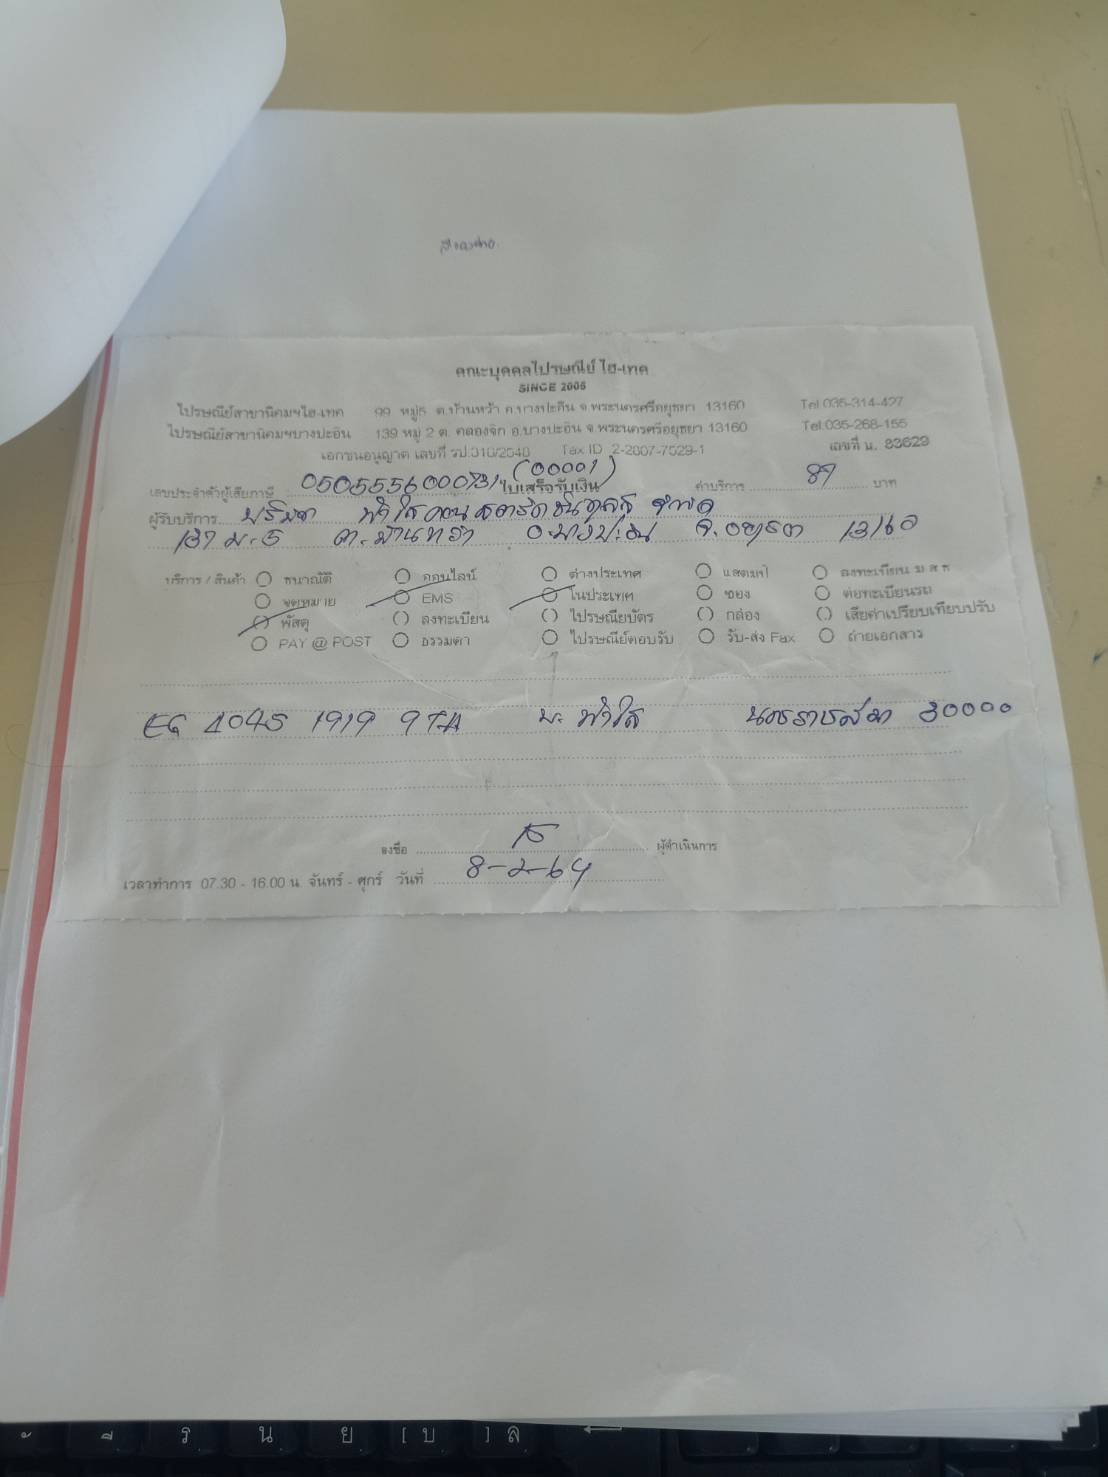 คณะบุคคลไปรษณีย์ ไฮ-เทค
SINCE 2005
ไปรษณีย์สาขานิคมฯไฮ-เทค 99 หมู่5 ต.บ้านหว้า อ.บางปะอิน จ.พระนครศรีอยุธยา 13160 Tel.035-314-427
ไปรษณีย์สาขานิคมฯบางปะอิน 139 หมู่ 2 ต. คลองจิก อ.บางปะอิน จ.พระนครศรีอยุธยา 13160 Tel.035-268-155
เอกชนอนุญาต เลขที่ รป.310/2540 Tax ID 2-2007-7529-1 เลขที่ น. 83629
เลขประจำตัวผู้เสียภาษี 0505556000731 (00001) ใบเสร็จรับเงิน ค่าบริการ 87 บาท
ผู้รับบริการ บริษัท ฟ้าใส คอนสตรัคชั่น จำกัด
137 ม.5 ต.บ้านหว้า อ.บางปะอิน จ.อยุธยา 13160
บริการ / สินค้า ธนาณัติ ออนไลน์ ต่างประเทศ แสตมป์ ลงทะเบียน
จดหมาย EMS ในประเทศ ซอง ต่อทะเบียนรถ
พัสดุ ลงทะเบียน ไปรษณียบัตร กล่อง เสียค่าเปรียบเทียบปรับ
PAY @ POST ธรรมดา ไปรษณีย์ตอบรับ รับ-ส่ง Fax ถ่ายเอกสาร
EG 4045 1919 9 TH บ. ฟ้าใส นครราชสีมา 30000
ลงชื่อ ผู้ดำเนินการ
เวลาทำการ 07.30 - 16.00 น. จันทร์ - ศุกร์ วันที่ 8-2-64